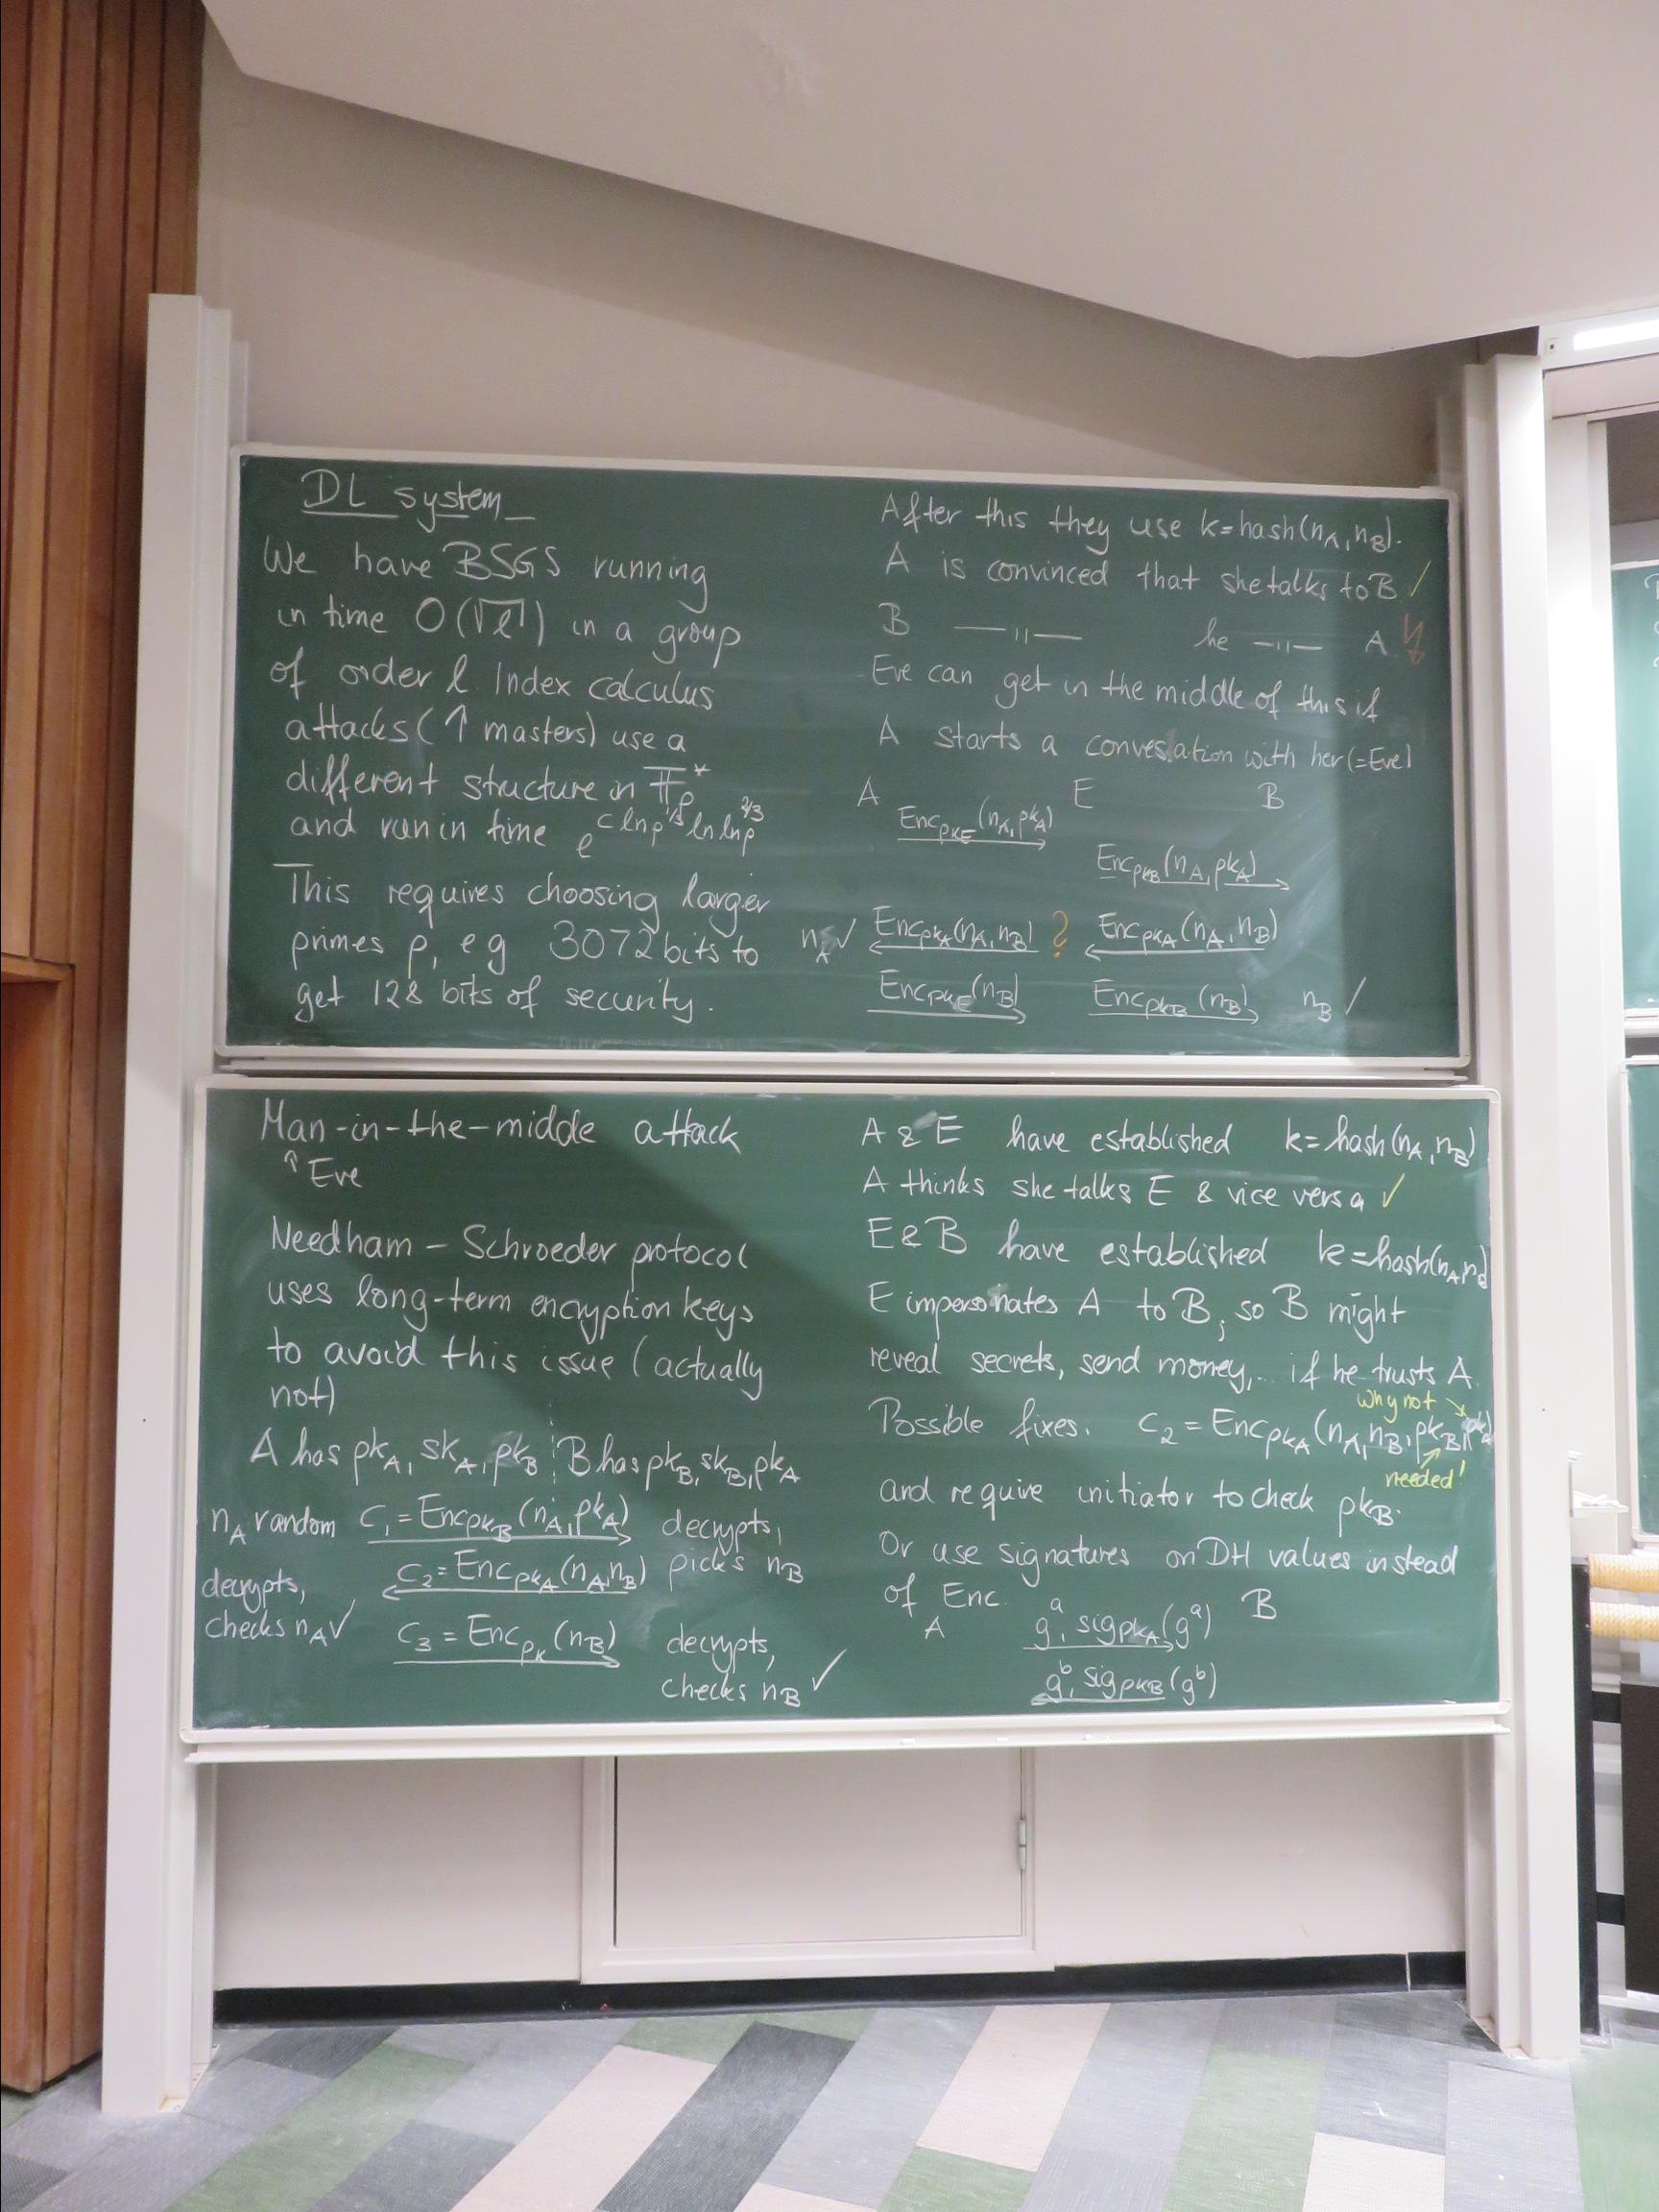 DL system
We have BSGS running
in time O(√ℓ) in a group
of order ℓ. Index calculus
attacks (↑ masters) use a
different structure in 𝔽p*
and run in time e^(c ln p^1/3 ln ln p^2/3)
This requires choosing larger
primes p, eg 3072 bits to
get 128 bits of security.
After this they use k=hash(nA, nB).
A is convinced that she talks to B ✓
B —〃— he —〃— A ↯
Eve can get in the middle of this if
A starts a convesation with her (=Eve)
A E B
EncpkE(nA, pkA)
EncpkB(nA, pkA)
nA ✓ EncpkA(nA, nB) ? EncpkA(nA, nB)
EncpkE(nB) EncpkB(nB) nB ✓
Man-in-the-middle attack
↑ Eve
Needham – Schroeder protocol
uses long-term encryption keys
to avoid this issue (actually
not)
A has pkA, skA, pkB B has pkB, skB, pkA
nA random C1 = EncpkB(nA, pkA) decrypts,
picks nB
decrypts, C2 = EncpkA(nA, nB)
checks nA ✓
C3 = Encpk(nB) decrypts,
checks nB ✓
A & E have established k = hash(nA, nB)
A thinks she talks E & vice versa ✓
E & B have established k = hash(nA, n
E impersonates A to B, so B might
reveal secrets, send money,.. if he trusts A.
why not ↘
Possible fixes. C2 = EncpkA(nA, nB, pkB, pkA)
needed!
and require initiator to check pkB.
Or use signatures on DH values instead
of Enc.
A g^a, sigpkA(g^a) B
g^b, sigpkB(g^b)